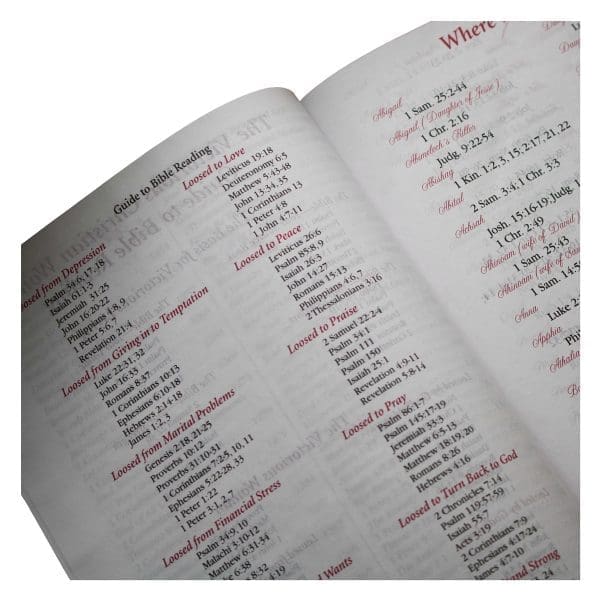 Guide to Bible Reading
Loosed from Depression
Psalm 34:6,17-18
Isaiah 61:1-3
Jeremiah 31:25
John 16:20-22
Philippians 4:8,9
1 Peter 5:6,7
Revelation 21:4
Loosed from Giving in to Temptation
Luke 22:31,32
John 16:33
Romans 8:37
1 Corinthians 10:13
Ephesians 6:10-18
Hebrews 2:14-18
James 1:2,3
Loosed from Marital Problems
Genesis 2:18,21-25
Proverbs 10:12
Proverbs 31:10-31
1 Corinthians 7:2-5,10,11
Ephesians 5:22-28,33
1 Peter 1:22
1 Peter 3:1,2,7
Loosed from Financial Stress
Psalm 34:9,10
Malachi 3:10-12
Matthew 6:31-34
Luke 6:38
Romans 8:32
Wants
Loosed to Love
Leviticus 19:18
Deuteronomy 6:5
Matthew 5:43-48
John 13:34,35
1 Corinthians 13
1 Peter 4:8
1 John 4:7-11
Loosed to Peace
Leviticus 26:6
Psalm 85:8,9
Isaiah 26:3
John 14:27
Romans 15:13
Philippians 4:6,7
2 Thessalonians 3:16
Loosed to Praise
2 Samuel 22:24
Psalm 34:1
Psalm 111
Psalm 150
Isaiah 25:1
Revelation 4:9-11
Revelation 5:8-14
Loosed to Pray
Psalm 86:1-7
Psalm 145:17-19
Jeremiah 33:3
Matthew 6:5-13
Matthew 18:19,20
Romans 8:26
Hebrews 4:16
Loosed to Turn Back to God
2 Chronicles 7:14
Psalm 119:57-59
Isaiah 55:7
Acts 3:19
2 Corinthians 7:9
Ephesians 4:17-24
James 4:7-10
and Strong
Where
Abigail
1 Sam. 25:2-44
Abigail (Daughter of Jesse)
1 Chr. 2:16
Abimelech's Killer
Judg. 9:22-54
Abishag
1 Kin. 1:2,3, 15; 2:17,21,22
Abital
2 Sam. 3:4;1 Chr. 3:3
Achsah
Josh. 15:16-19;Judg.
1 Chr. 2:49
Ahinoam (wife of David)
1 Sam. 25:43
Ahinoam (wife of
1 Sam. 14:50
Anna
Luke 2:
Apphia
Athalia